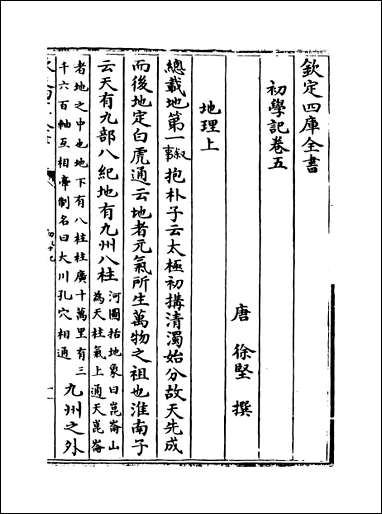 欽定四庫全書
初學記卷五
唐 徐堅 撰
地理上
總載地第一 敘事 抱朴子云太極初搆清濁始分故天先成
而後地定白虎通云地者元氣所生萬物之祖也淮南子
云天有九部八紀地有九州八柱 河圖括地象曰崑崙山
為天柱氣上通天崑崙
者地之中也地下有八柱柱廣十萬里有三
千六百軸互相牽制名曰大川孔穴相通 九州之外